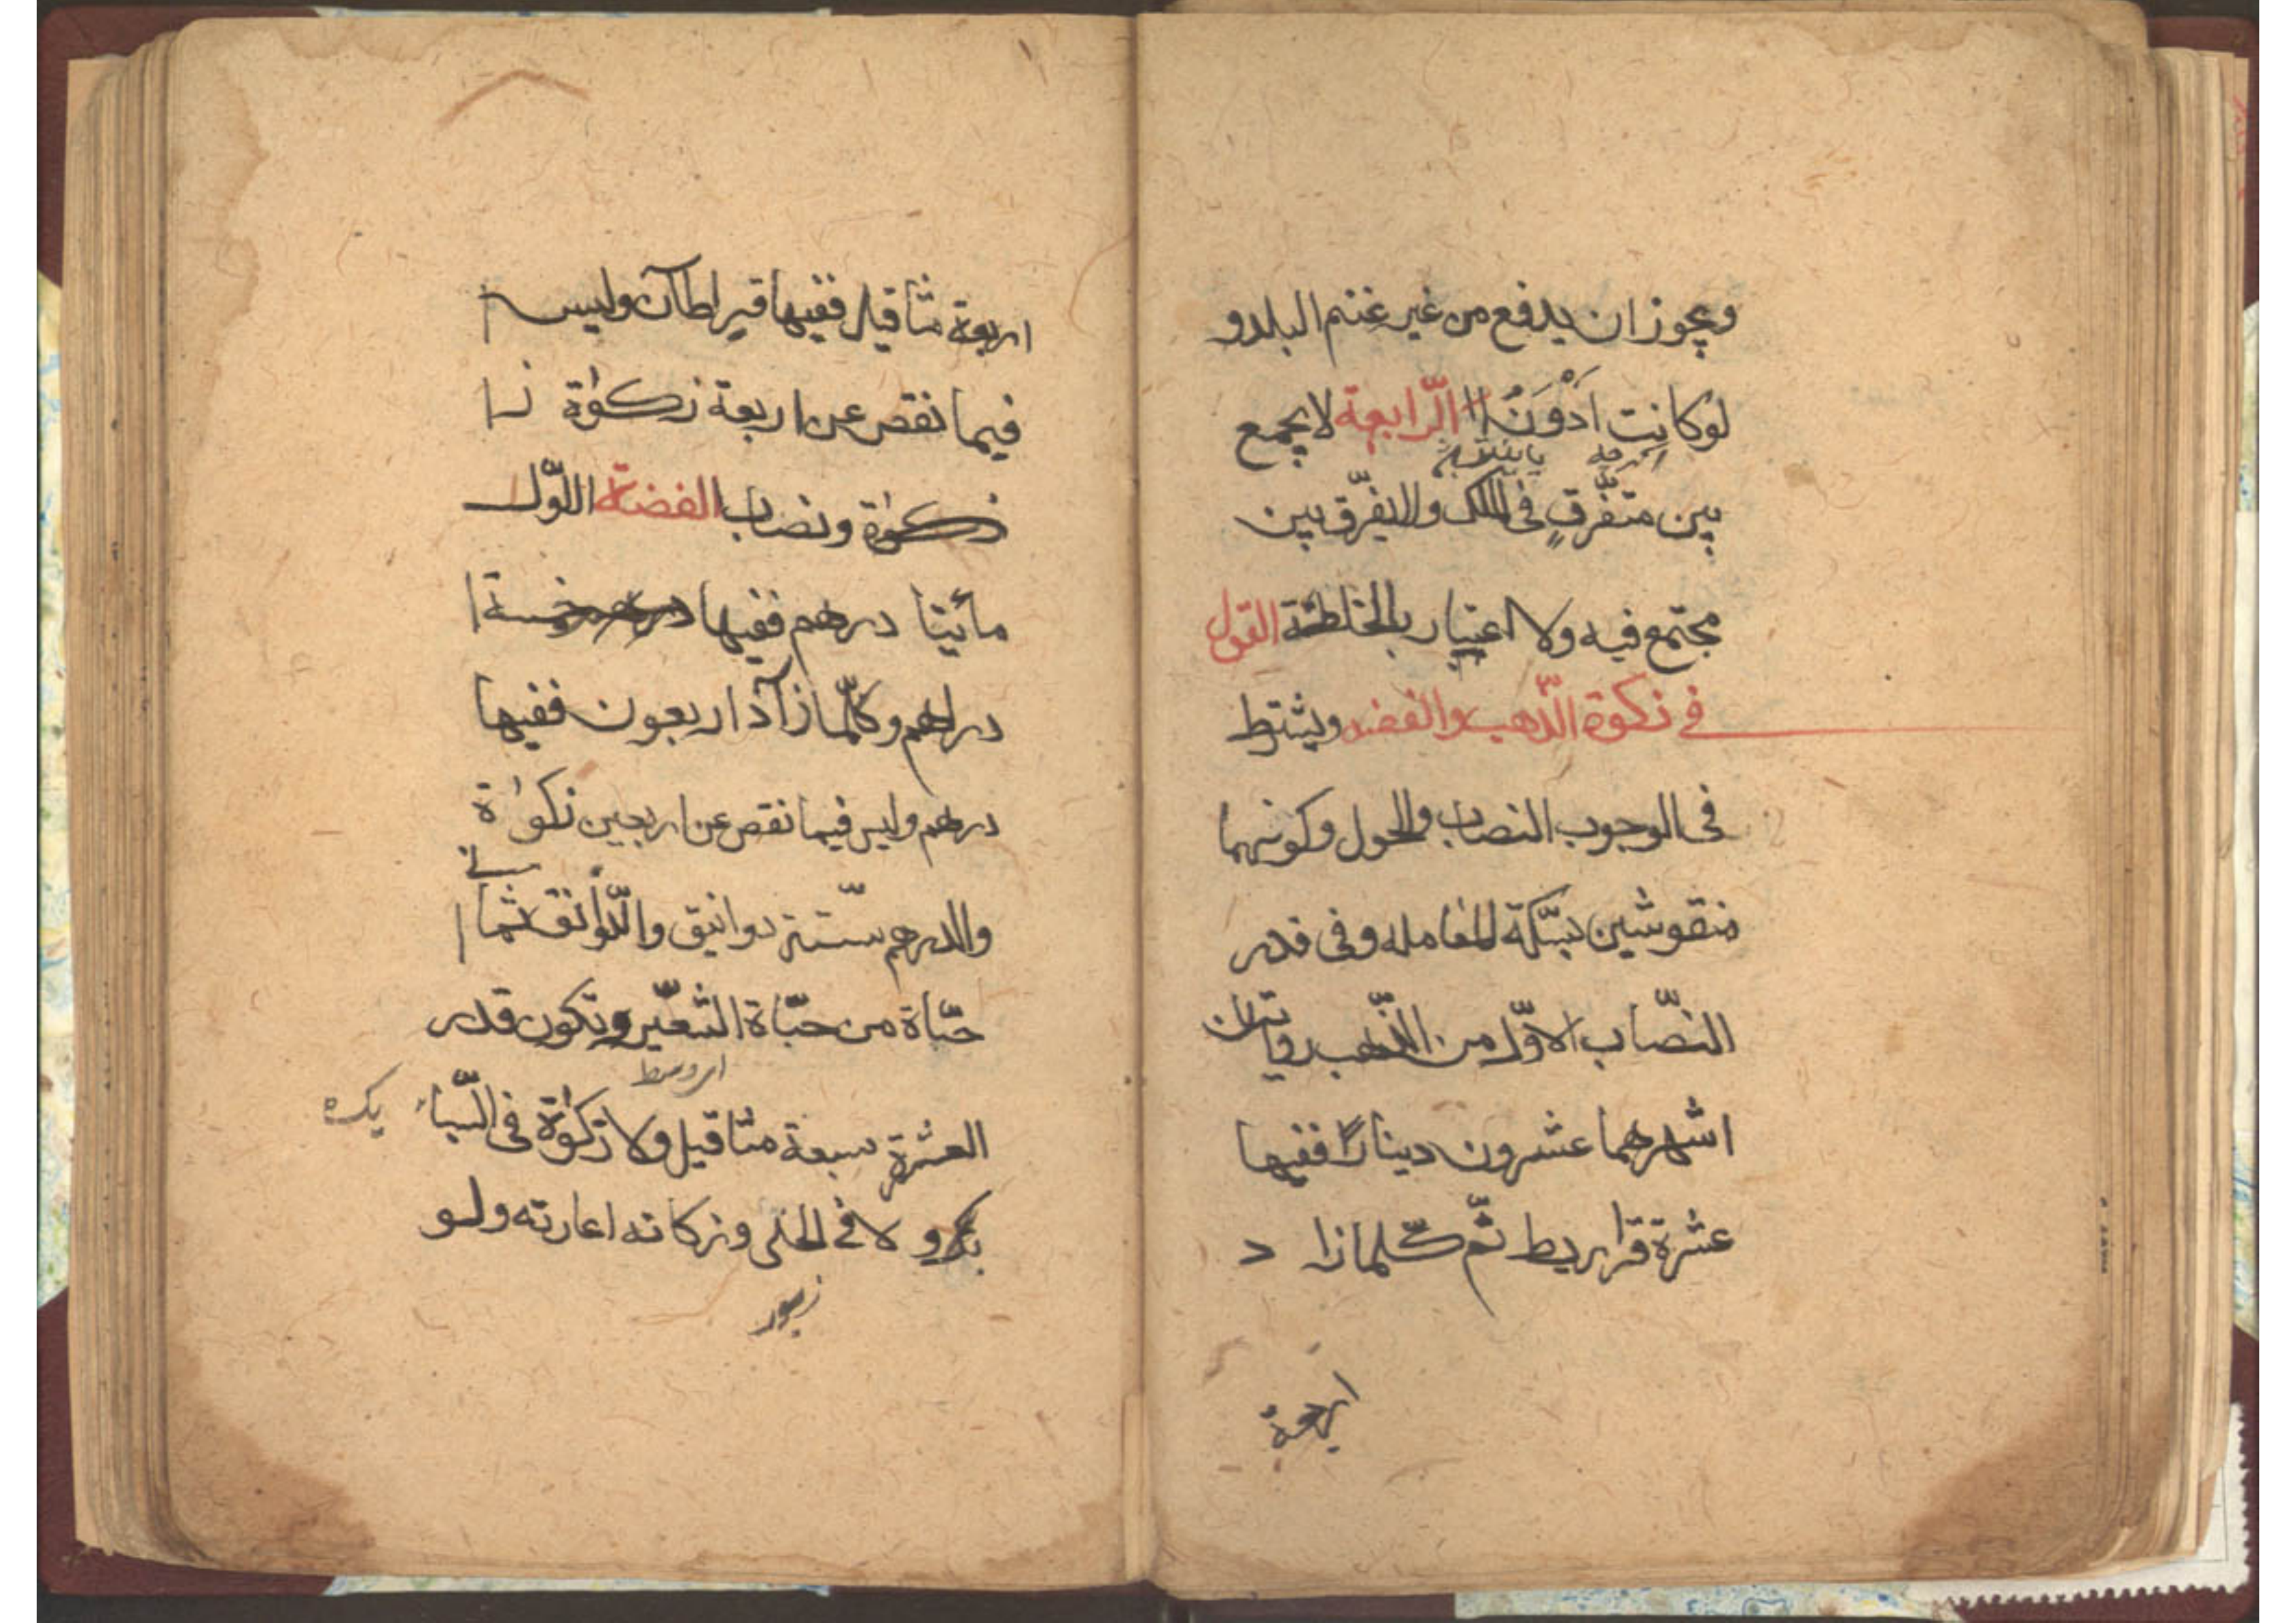 ويجوز ان يدفع من غير غنم البلد و
لوكانت اَدْوَنُ الرّابعة لا يجمع
بين متفّرقٍ فى الملك ولا يفّرق بين
مجتمع فيه ولا اعتبار بالخلطة القول
فى زكوة الذّهب والفضه ويشترط
فى الوجوب النصاب والحول وكونهما
منقوشين بسّكة المعامله وفى قدر
النصّاب الاوّل من الذّهب روايتان
اشهرهما عشرون دينارًا ففيها
عشرة قراريط ثّم كلّما زا د
اربعة
اربعة مثاقيل ففيها قيراطان وليس
فيما نقص عن اربعة زكوٰة
زكوٰة ونصاب الفضة الاوّل
مأيتا درهم ففيها خمسة
دراهم وكلّما زآد اربعون ففيها
درهم وليس فيما نقص عن اربعين زكوٰة
والدرهم ستّة دوانيق والدّوانق ثما
حبّاة من حبّاة الشعّير وتكون قدر
العشرة سبعة مثاقيل ولا زكوٰة فى السّباء
ولا فى الحلى وزكاته اعارته ولو
زيور